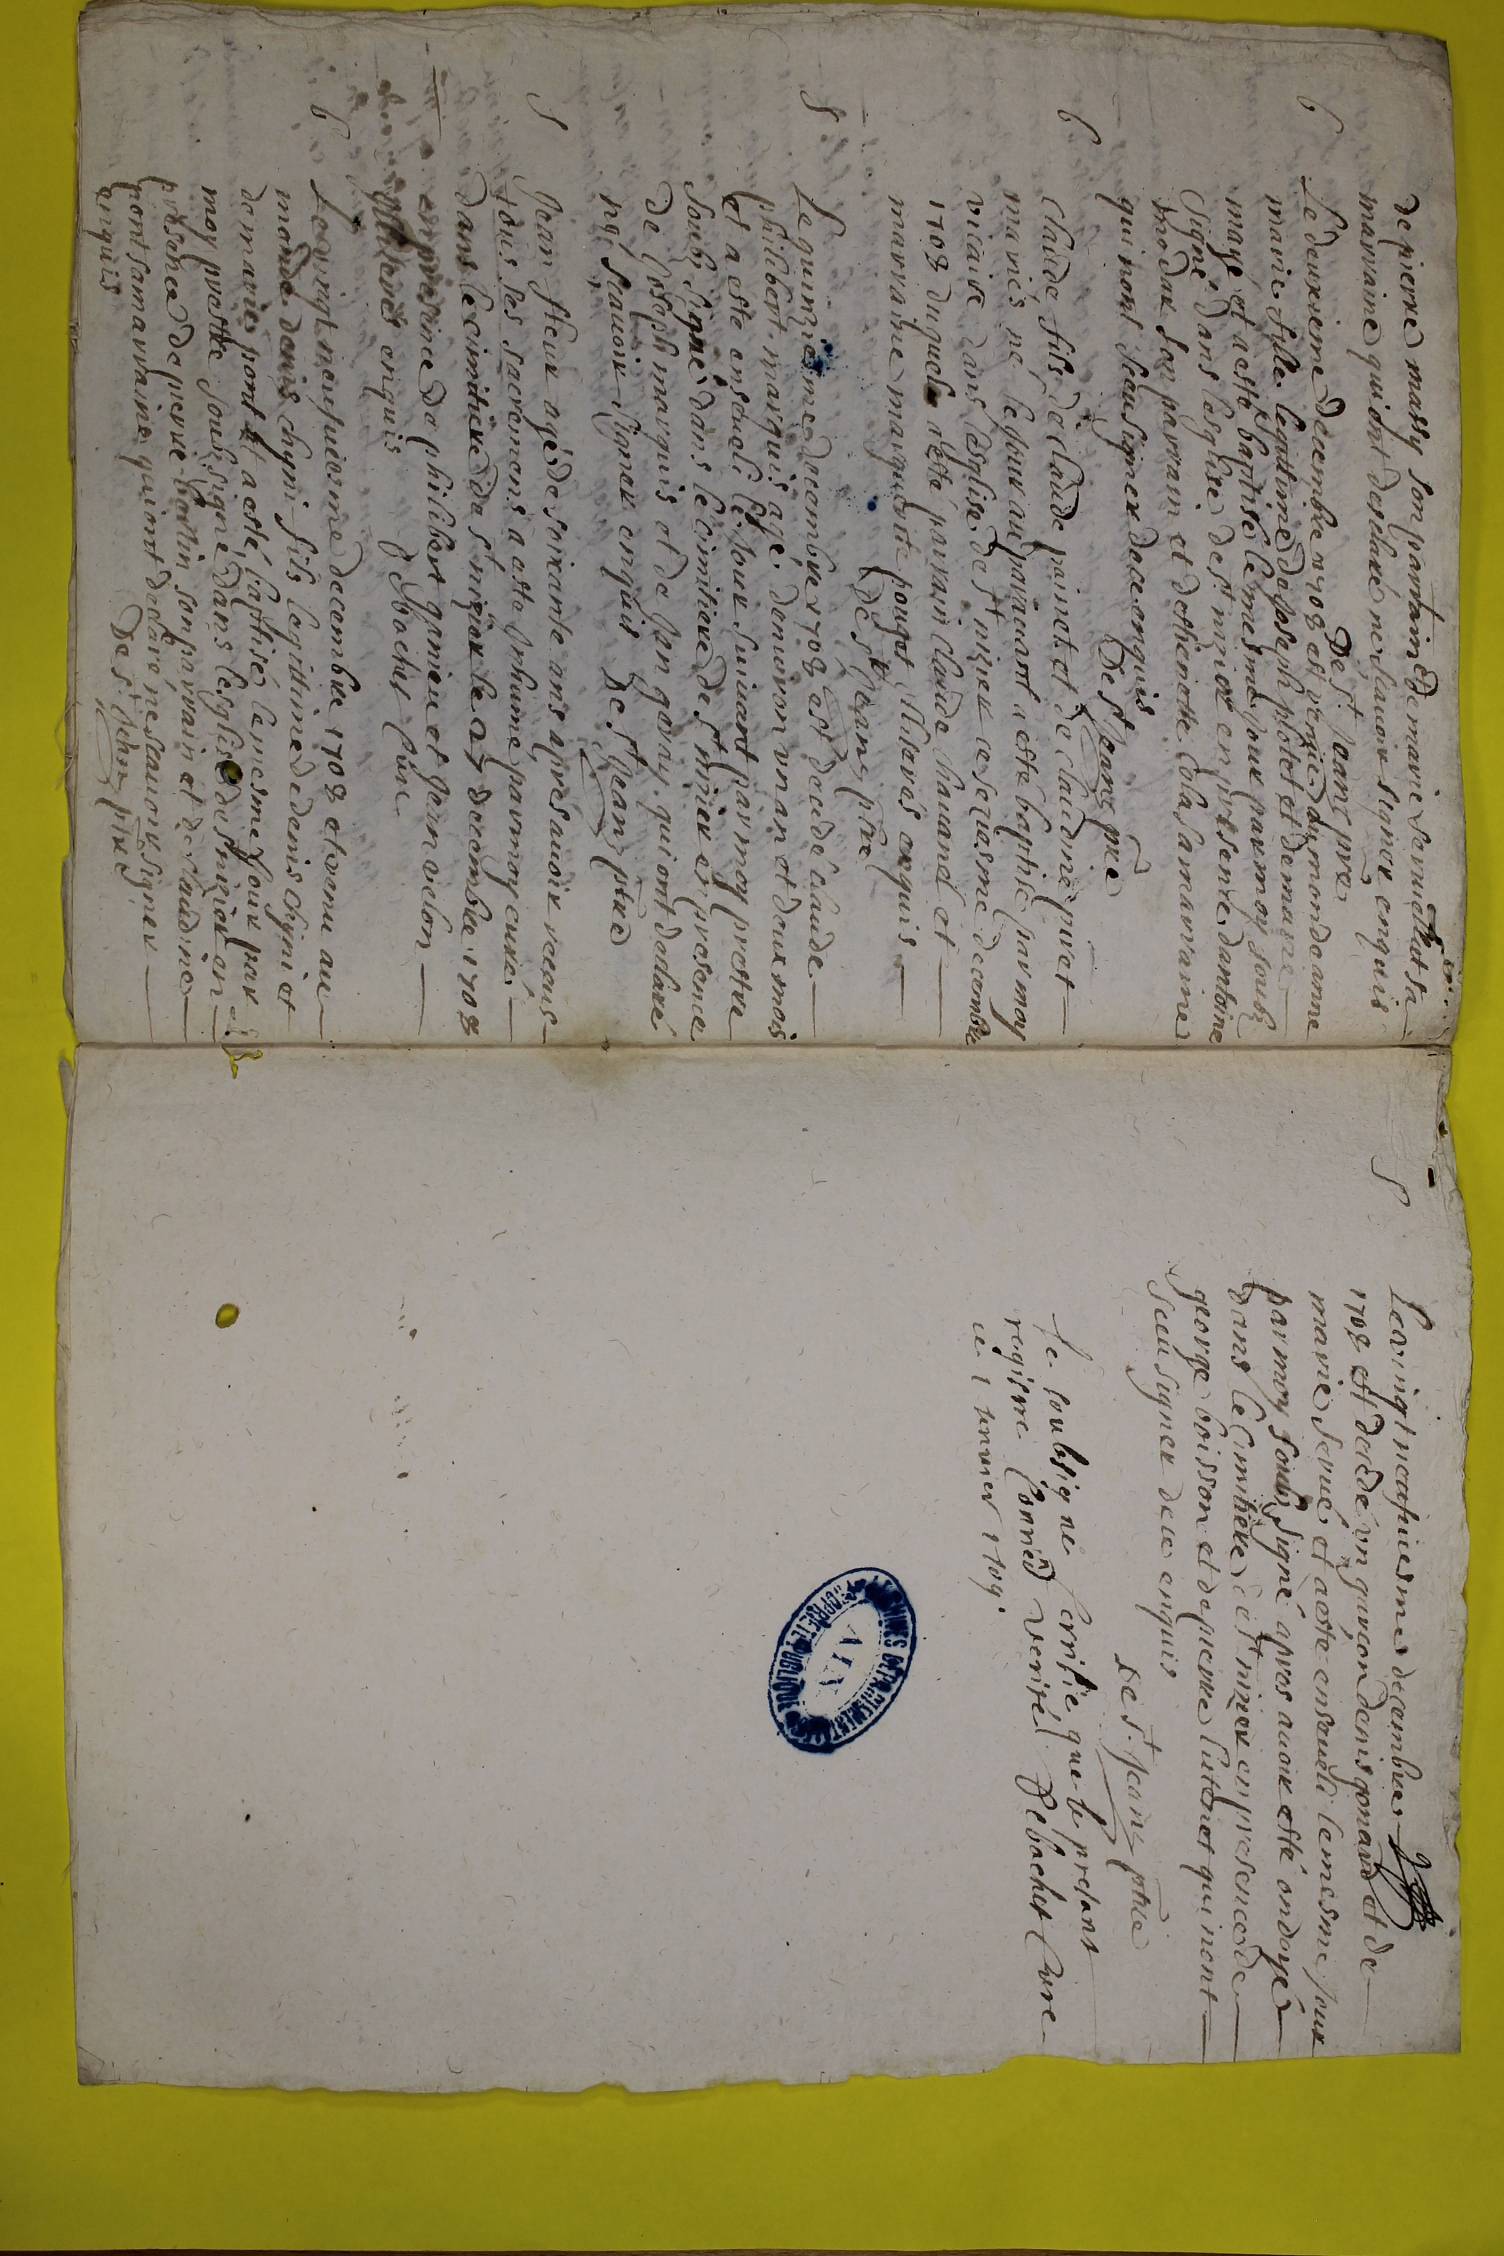 de pierre massy son parrain et de marie servet et sa
marraine qui ont desclaré ne scauoir signer enquis
De St Jean ptre
b Le deuxieme decembre 1708 est venüe au monde anne
marie fille legittime de Joseph plotet et de marie
maye et a esté baptisée le mesme jour par moy soub
signé dans lesglise de st nizier en presence dantoine
brodar son parrain et destienette colas sa marraine
qui nont sceu signer de ce enquis
De St Jean ptre
b claude fils de claude painet et de claudine pivet
mariés né le jour auparauant a esté baptisé par moy
vicaire dans lesglise de st nizier ce seziesme decembre
1708 duquel a esté parrain claude hauand et
marraine marguerite pouget illiterés enquis
De St Jean ptre
S Le quinziesme decembre 1708 est decedé claude
philibert marquis agé denuiron vn an et deux mois
et a este enseueli le jour suiuant par moy prestre
soubsigné dans le cimitiere de st nizier en presence
de Joseph marquis et de Jan geay qui ont declaré
ne scauoir signer enquis De St Jean ptre
S Jean fleur agé de soixante ans apres auoir receus
tous ses sacremens a este inhumé par moy curé
dans le cimitiere de st nizier le 27 decembre 1708
en presence de philibert granieu et Jean velon
illiterés enquis Debachet Cure
b Le vingt neufuiesme decembre 1708 est venu au
monde denis chyni fils legittime de denis chyni et
de marie pont et a esté baptisé le mesme jour par
moy prestre soubsigné dans lesglise de st nizier en
presence de pierre bertin son parrain et de claudine
pont sa marraine qui ont declaré ne scauoir signer
enquis De St Jehan ptre
S Le vingt neufuiesme decembre
1708 est decedé vn garcon denis gonard et de
marie serue et a este enseueli le mesme jour
par moy soubsigné apres auoir esté ondoyé
dans le cimitiere de st nizier en presence de
george boisson et de pierre lutenet qui nont
sceu signer de ce enquis
De St Jean ptre
Je soubsigne certifie que le presant
registre Contien verité Debachet Cure
ce 1 Januier 1709.
ARCHIVES DEPARTEMENTALES
AIN
PROPRIETE PUBLIQUE